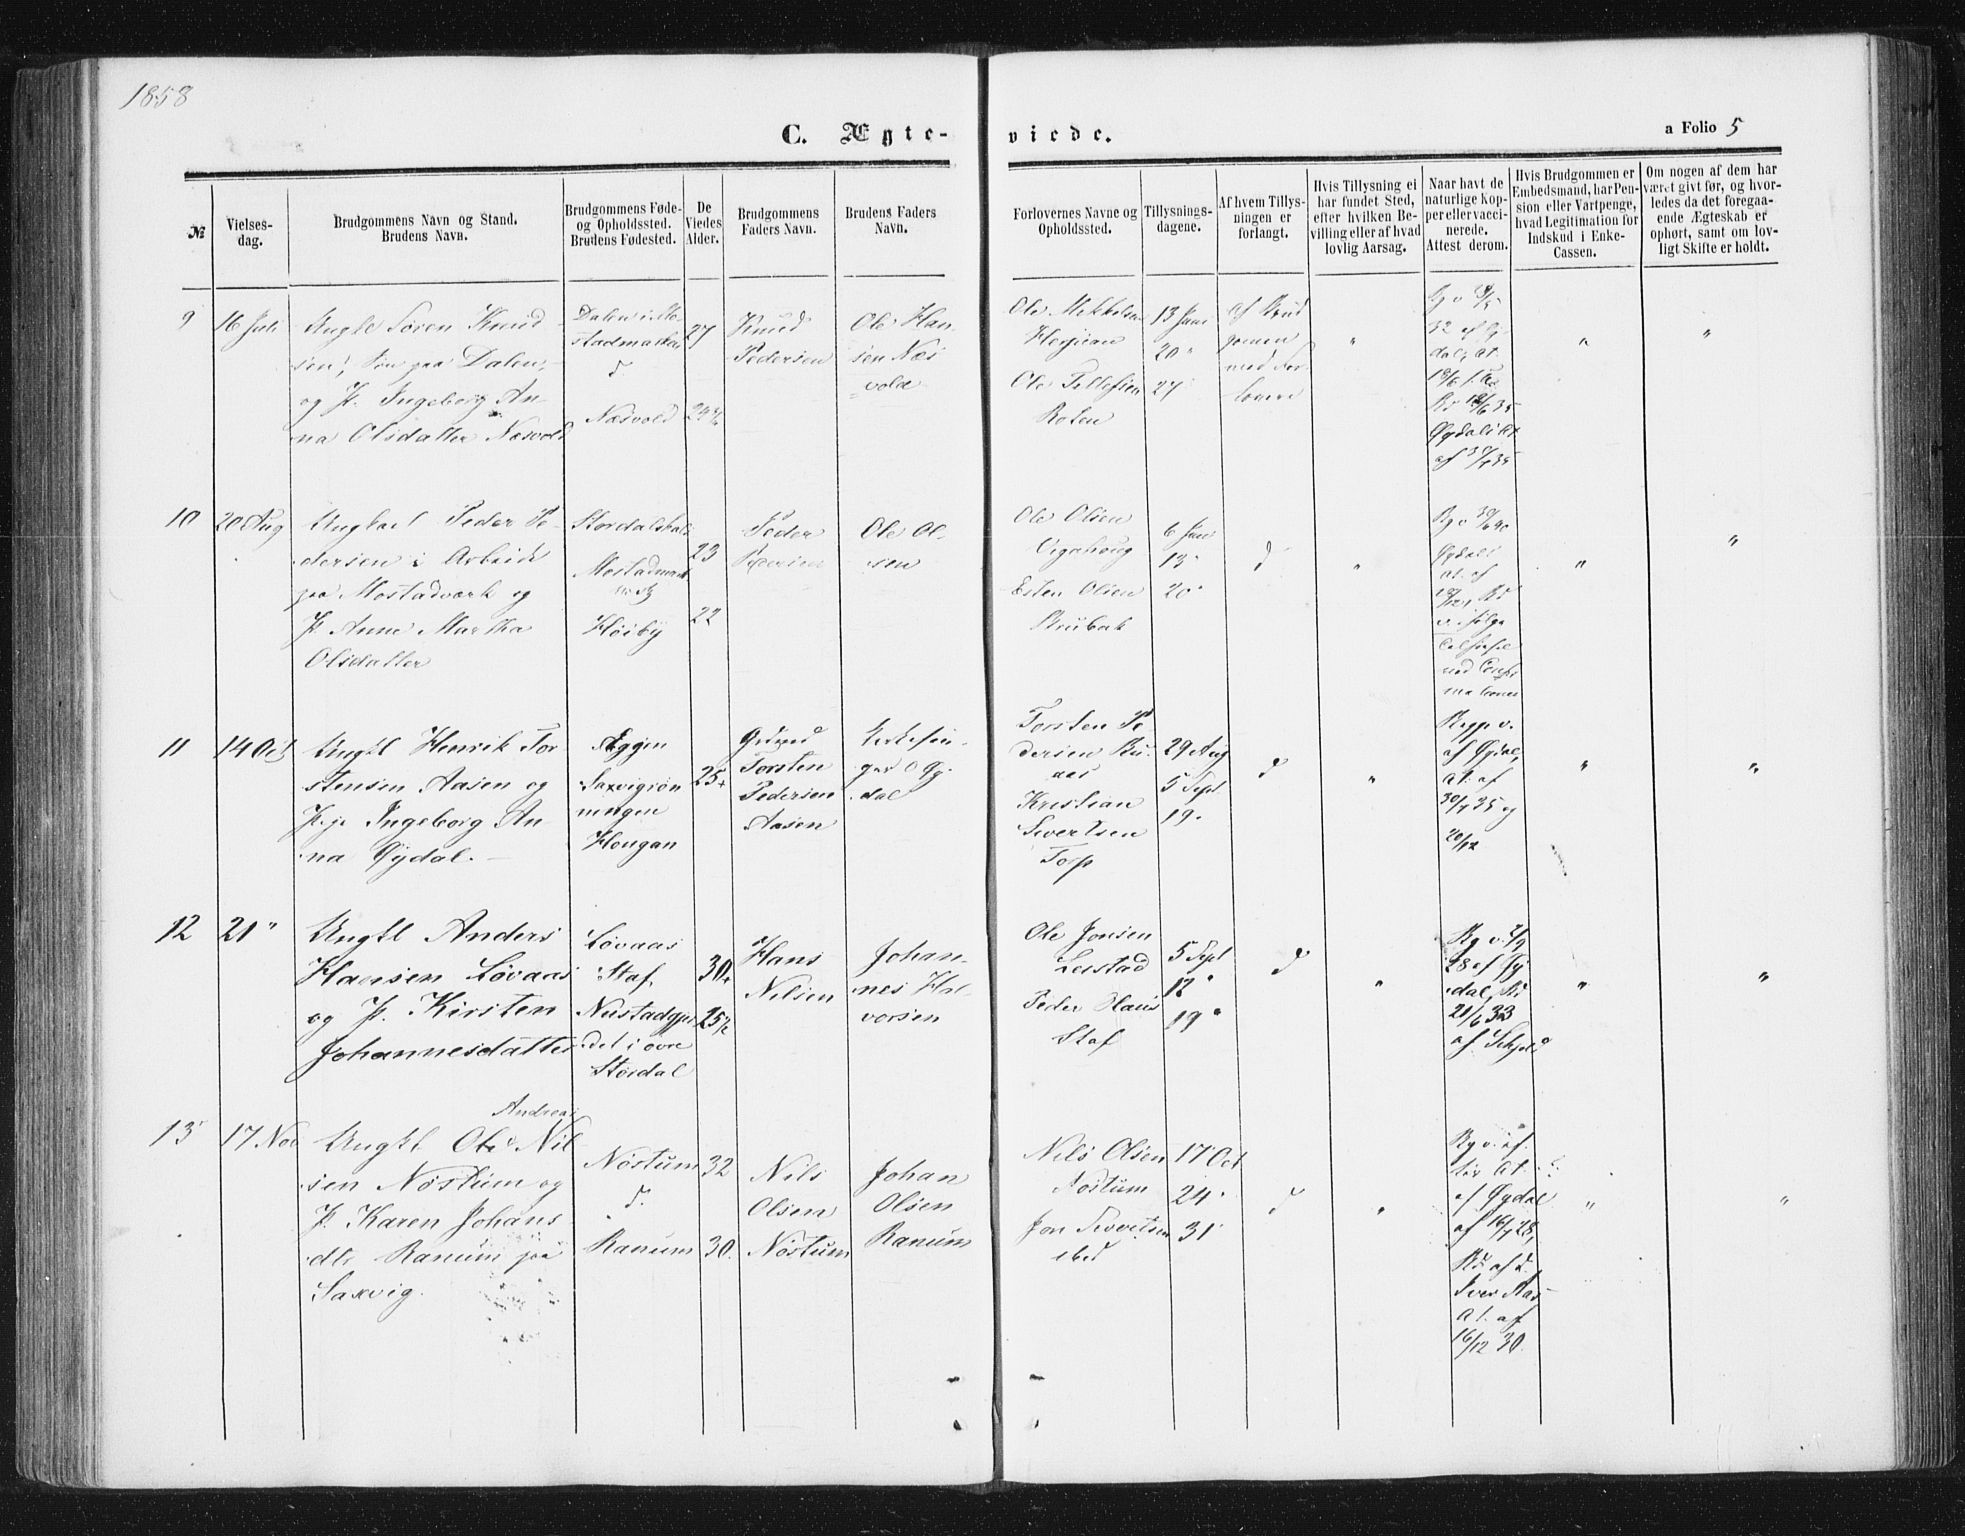 1858
C. Ægte-
viede.
a Folio 5
№
Vielses-
dag.
Brudgommens Navn og Stand.
Brudens Navn.
Brudgommens Føde-
og Opholdssted.
Brudens Fødested.
De
Viedes
Alder.
Brudgommens
Faders Navn.
Brudens Faders
Navn.
Forlovernes Navne og
Opholdssted.
Tillysnings-
dagene.
Af hvem Tillys-
ningen er
forlangt.
Hvis Tillysning ei
har fundet Sted,
efter hvilken Be-
villing eller af hvad
lovlig Aarsag.
Naar havt de
naturlige Kop-
per eller vacci-
nerede.
Attest derom.
Hvis Brudgommen er
Embedsmand, har Pen-
sion eller Vartpenge,
hvad Legitimation for
Indskud i Enke-
Cassen.
Om nogen af dem har
været givt før, og hvor-
ledes da det foregaa-
ende Ægteskab er
ophørt, samt om lov-
ligt Skifte er holdt.
9
16 Juli
Ungkl Søren Knud-
sen, Søn paa Dalen,
og P. Ingeborg An-
na Olsdatter Næsvold
Dalen i Mo-
stadmarka
d
Næsvold
27
Knud
Pedersen
Ole Han-
sen Næs
vold
Ole Mikkelsen
Ole Tellefsen
Roten
13 Juni
20 "
27
af Brud
gomen
med For-
lovere
"
"
"
10
20 Aug
Ungkarl Peder Pe-
dersen i Arbeide
paa Mostadværk og
P. Anne Martha
Olsdatter
Høiby
23
22
Peder
Pedersen
Ole Ol-
sen
Ole Olsen
Vigahoug
Esten Olsen
6 Juni
13 "
20 "
d
"
"
"
11
14 Oct
Ungkl Henrik Tor-
stensen Aasen og
Pige Ingeborg An-
na Gydal. -
Saxvigrøn
ningen
Hougan
25
Torsten
Pedersen
Aasen
dal
Torsten Pe
dersen Ru-
aas
Kristian
Sivertsen
Torp
29 Aug
5 Sept.
19 "
d
"
af Gydal,
at. af
30/4 35 og
"
"
12
21 "
Ungkl Anders
Hansen Løvaas
og P. Kirsten
Johannesdatter
Løvaas
Staf
det i øvre
Størdal
30
25 1/2
Hans
Nilsen
Johan-
nes Hal-
vorsen
Ole Jonsen
Leistad
Peder Hans
Staf
5 Sept
12 "
19 "
d
"
28 af Gy
dal,
21/6 33
"
"
13
17 Nov
Andreas
Ungkl Ole Nil-
sen Nøstum og
P. Karen Johans
dtr Ranum paa
Saxvig.
Nøstum
d.
Ranum
32
30.
Nils
Olsen
Nøstum
Johan
Olsen
Ranum
Nils Olsen
Nøstum
Jon Sivertsen
ibed
17 Oct
24 "
31
d
"
af Gydal
af 16/4 28,
At. af
16/12 30.
"
"